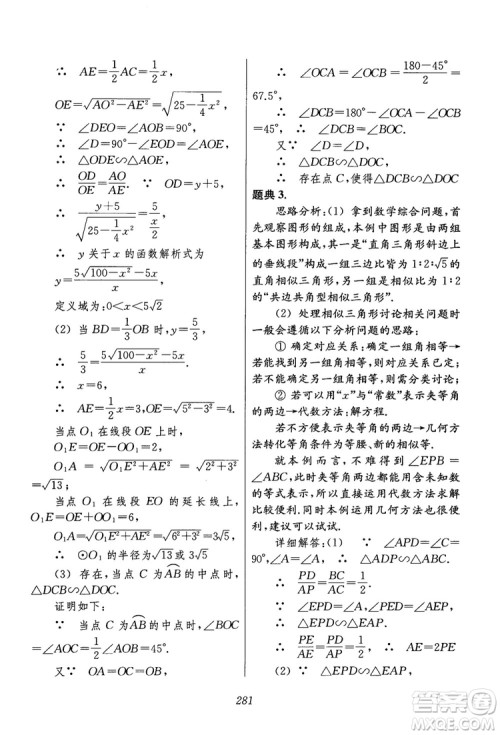 ∵ AE=1/2AC=1/2x,
OE=√(AO²−AE²)=√(25−1/4x²)
∵ ∠DEO=∠AOB=90°,
∴ ∠D=90°−∠EOD=∠AOE,
∴ △ODE∽△AOE.
∴ OD/OE=AO/AE, ∵ OD=y+5,
∴ (y+5)/√(25−1/4x²)=5/(1/2x).
∴ y关于x的函数解析式为
y=(5√(100−x²)−5x)/x.
定义域为:0<x<5√2
(2) 当BD=1/3OB时,y=5/3,
∴ 5/3=(5√(100−x²)−5x)/x.
∴ x=6,
∴ AE=1/2x=3,OE=√(5²−3²)=4.
当点O₁在线段OE上时,
O₁A=√(O₁E²+AE²)=√(2²+3²)
=√13;
当点O₁在线段EO的延长线上时,
O₁E=OE+OO₁=6,
O₁A=√(O₁E²+AE²)=√(6²+3²)=3√5.
∴ ⊙O₁的半径为√13或3√5.
(3) 存在,当点C为AB的中点时,
△DCB∽△DOC.
证明如下:
∵ 当点C为AB的中点时,∠BOC
=∠AOC=1/2∠AOB=45°,
又∵ OA=OC=OB,
∴ ∠OCA=∠OCB=(180−45°)/2=
67.5°,
∴ ∠DCB=180°−∠OCA−∠OCB
=45°,∴ ∠DCB=∠BOC.
又∵ ∠D=∠D,
∴ △DCB∽△DOC.
∴ 存在点C,使得△DCB∽△DOC.
题典3.
思路分析:(1) 拿到数学综合问题,首
先观察图形的组成,本例中图形是由两组
基本图形组成的,其一是“直角三角形斜边上
的垂线段”构成一组三边比皆为1:2:√5的
直角三角形,另一组则为相似比为1:2的
“共边共角型相似三角形”.
(2) 处理相似三角形讨论相关问题时
一般会遵循以下分析问题的思路:
① 确定对应关系:确定对应角相等,
若能找到另一组角相等,则对应关系已定;
若找不到另一组角相等,则需分类讨论;
② 若可以用“x”与“常数”表示夹等角
的两边→代数方法:解方程.
若不方便用代数表示夹等角→几何方
法转化等角条件为等腰、新的相似等.
就本例而言,不难得到∠EPB=
∠ABC,此时夹等角两边都能用含未知数
的等式表示,所以尝试利用代数方法求解
比较简便.同时本例运用几何方法也可以
解决问题,有兴趣的读者可以试试.
详细解答:(1) ∵ ∠APD=∠C=
90°,∠A=∠A,∴ △ADP∽△ABC.
∴ PD/AP=BC/AC=1/2.
∵ ∠EPD=∠A,∠PED=∠AEP,
∴ △EPD∽△EAP.
∴ PE/AE=PD/AP=1/2.∴ AE=2PE.
(2) ∵ △EPD∽△EAP,
281
答案圈